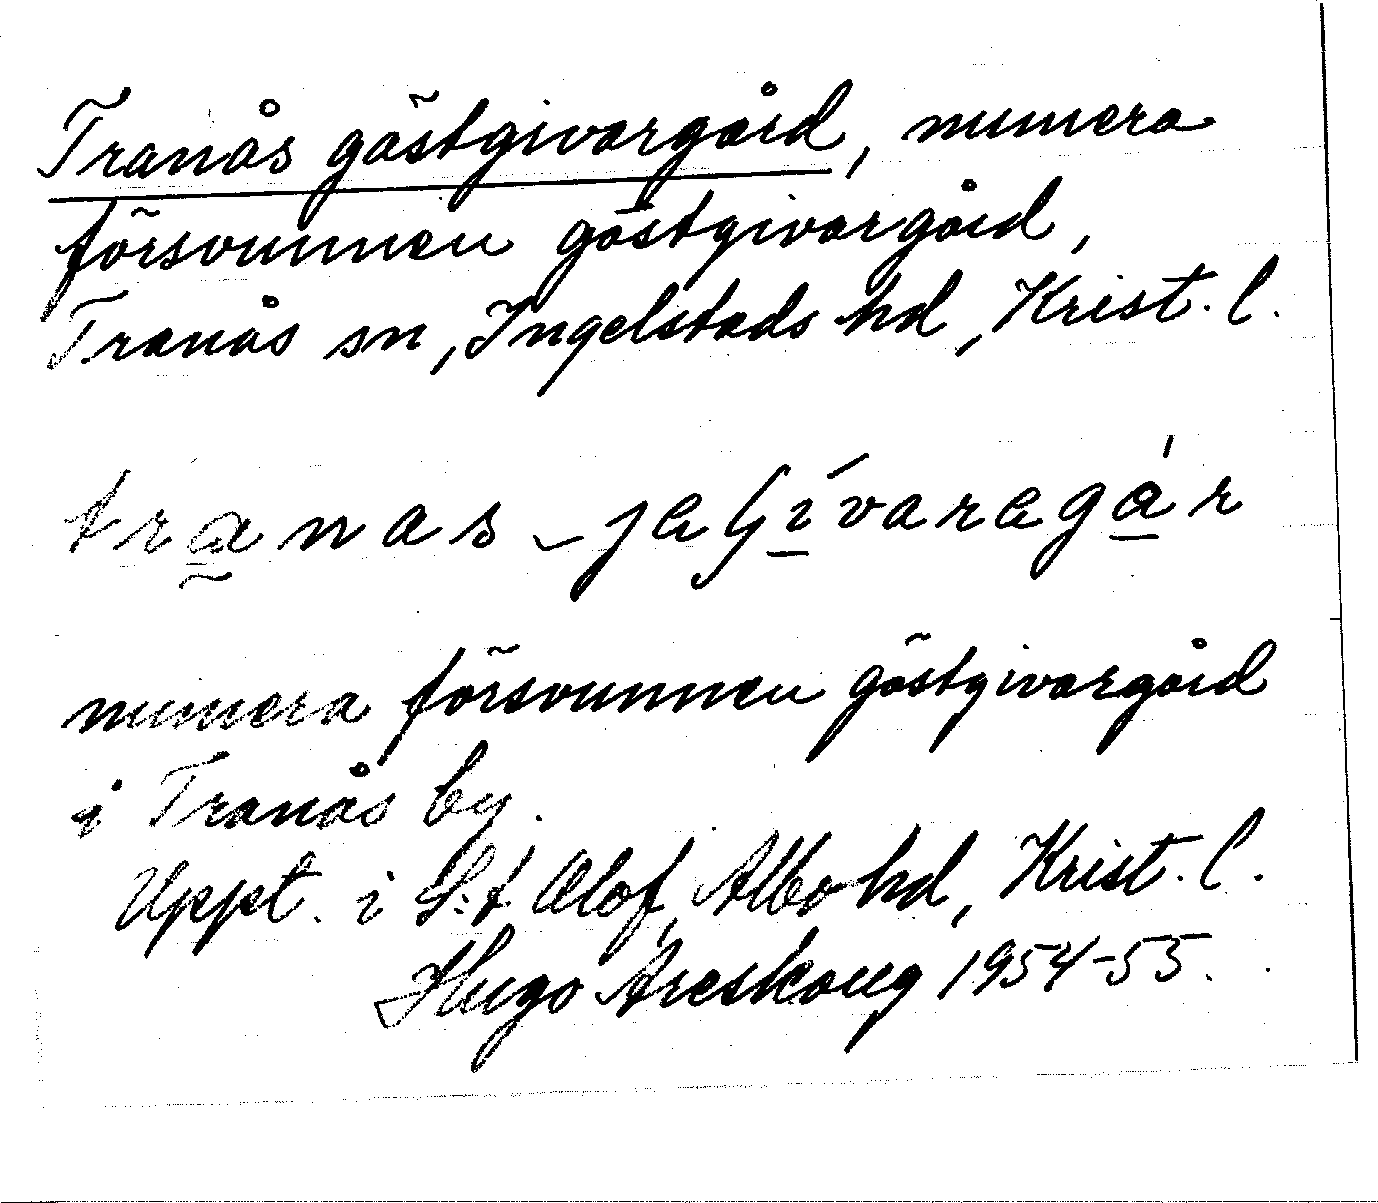 Tranås gästgivargård, numera
försvunnen gästgivargård,
Tranås sn, Ingelstads hd, Krist. l.
numera försvunnen gästgivargård
i Tranås by.
Uppt. i S:t Olof, Albo hd, Krist. l.
Hugo Areskoug 1954-55.